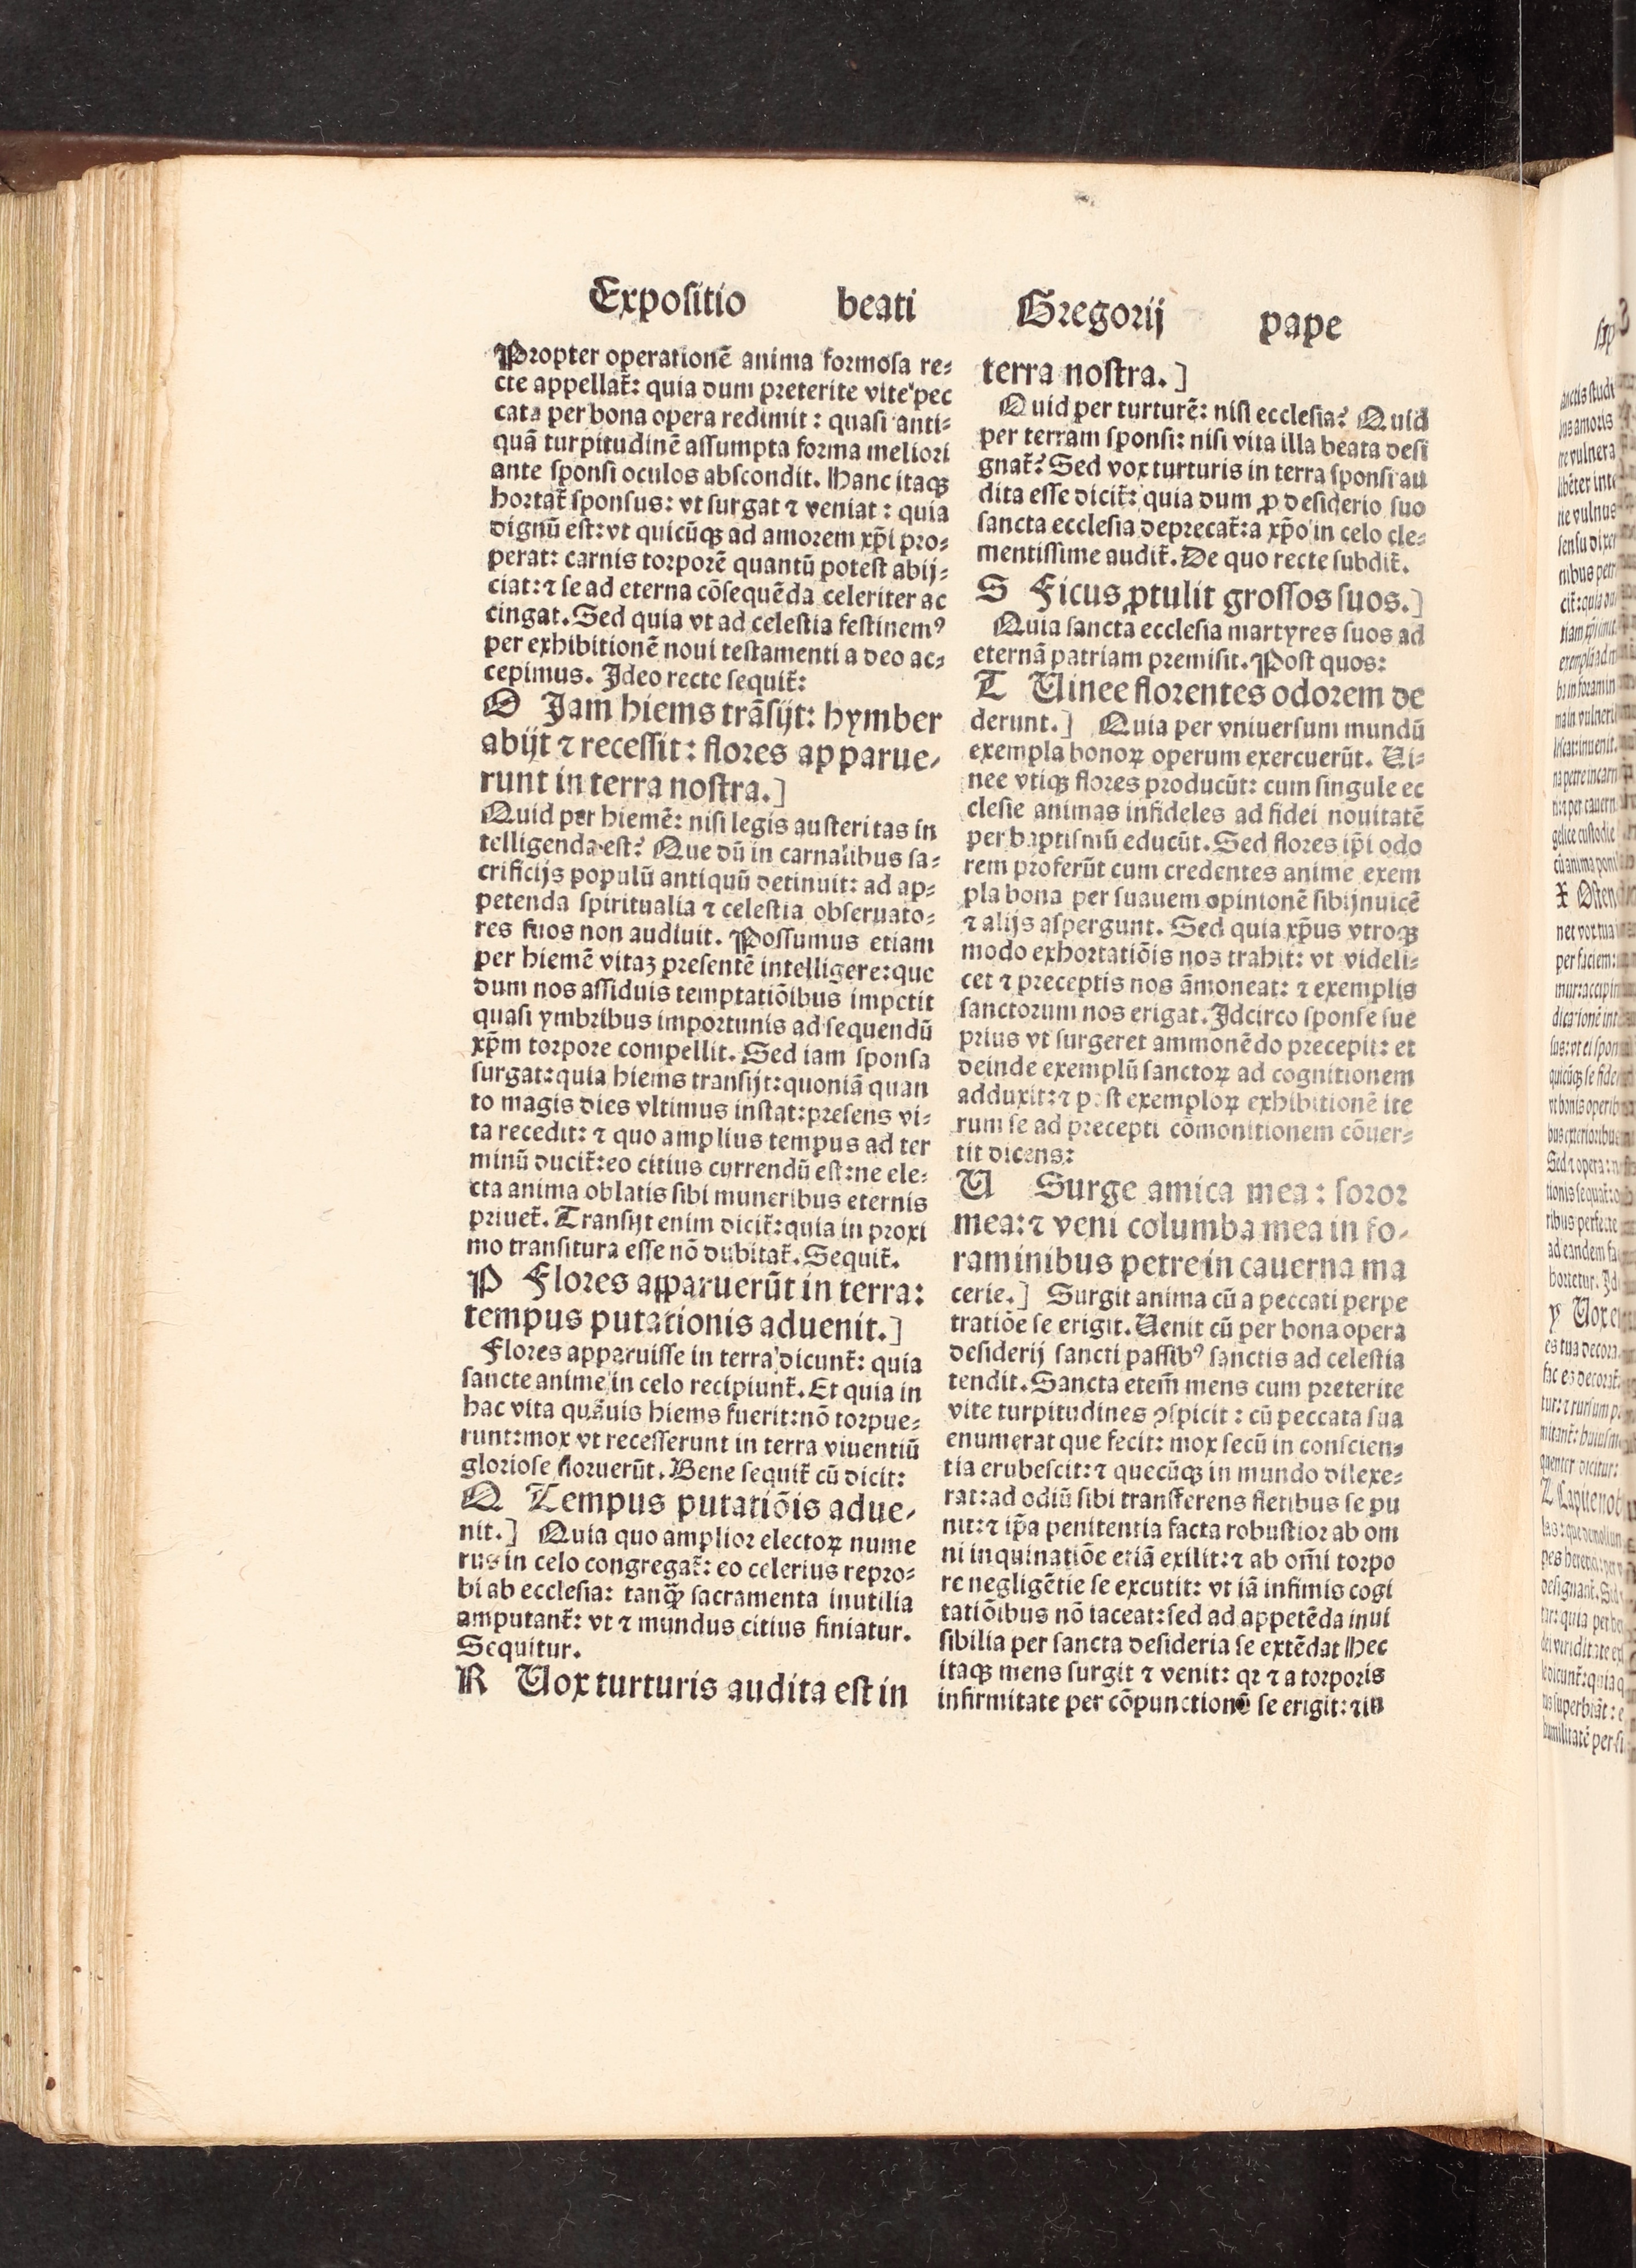 Expositio beati Gregorij pape
Propter operationē anima formosa re⸗
cte appellat̄: quia dum preterite vite pec
cata per bona opera redimit: quasi anti⸗
quā turpitudinē assumpta forma meliori
ante sponsi oculos abscondit. Hanc itaqꝫ
hortat̄ sponsus: vt surgat ⁊ veniat: quia
dignū est: vt quicūqꝫ ad amorem xp̄i pro⸗
perat: carnis torporē quantū potest abij⸗
ciat: ⁊ se ad eterna cōsequēda celeriter ac
cingat. Sed quia vt ad celestia festinemꝰ
per exhibitionē noui testamenti a deo ac⸗
cepimus. Ideo recte sequit̄:
O Jam hiems trāsijt: hymber
abijt ⁊ recessit: flores apparue⸗
runt in terra nostra.]
Quid per hiemē: nisi legis austeritas in
telligenda est? Que dū in carnalibus sa⸗
crificijs populū antiquū detinuit: ad ap⸗
petenda spiritualia ⁊ celestia obseruato⸗
res suos non audiuit. Possumus etiam
per hiemē vitaꝫ presentē intelligere: que
dum nos assiduis temptatiōibus impetit
quasi ymbribus importunis ad sequendū
xp̄m torpore compellit. Sed iam sponsa
surgat: quia hiems transijt: quoniā quan
to magis dies vltimus instat: presens vi⸗
ta recedit: ⁊ quo amplius tempus ad ter
minū ducit̄: eo citius currendū est: ne ele⸗
cta anima oblatis sibi muneribus eternis
priuet̄. Transijt enim dicit̄: quia in proxi
mo transitura esse nō dubitat̄. Sequit̄.
P Flores apparuerūt in terra:
tempus putationis aduenit.]
Flores apparuisse in terra dicunt̄: quia
sancte anime in celo recipiunt̄. Et quia in
hac vita quāuis hiems fuerit: nō torpue⸗
runt: mox vt recesserunt in terra viuentiū
gloriose floruerūt. Bene sequit̄ cū dicit:
Q Tempus putatiōis adue⸗
nit.] Quia quo amplior electoꝝ nume
rus in celo congregat̄: eo celerius repro⸗
bi ab ecclesia: tanqꝫ̄ sacramenta inutilia
amputant̄: vt ⁊ mundus citius finiatur.
Sequitur.
R Uox turturis audita est in
terra nostra.]
Quid per turturē: nisi ecclesia? Quid
per terram sponsi: nisi vita illa beata desi
gnat̄? Sed vox turturis in terra sponsi au
dita esse dicit̄: quia dum ꝓ desiderio suo
sancta ecclesia deprecat̄: a xp̄o in celo cle⸗
mentissime audit̄. De quo recte subdit̄.
S Ficus ꝓtulit grossos suos.]
Quia sancta ecclesia martyres suos ad
eternā patriam premisit. Post quos:
T Uinee florentes odorem de
derunt.] Quia per vniuersum mundū
exempla bonoꝝ operum exercuerūt. Ui⸗
nee vtiqꝫ flores producūt: cum singule ec
clesie animas infideles ad fidei nouitatē
per baptismū educūt. Sed flores ip̄i odo
rem proferūt cum credentes anime exem
pla bona per suauem opinionē sibijnuicē
⁊ alijs aspergunt. Sed quia xp̄us vtroqꝫ
modo exhortatiōis nos trahit: vt videli⸗
cet ⁊ preceptis nos āmoneat: ⁊ exemplis
sanctorum nos erigat. Idcirco sponse sue
prius vt surgeret ammonēdo precepit: et
deinde exemplū sanctoꝝ ad cognitionem
adduxit: ⁊ post exemploꝝ exhibitionē ite
rum se ad precepti cōmonitionem cōuer⸗
tit dicens:
U Surge amica mea: soror
mea: ⁊ veni columba mea in fo⸗
raminibus petre in cauerna ma
cerie.] Surgit anima cū a peccati perpe
tratiōe se erigit. Uenit cū per bona opera
desiderij sancti passibꝰ sanctis ad celestia
tendit. Sancta etem̄ mens cum preterite
vite turpitudines ↄspicit: cū peccata sua
enumerat que fecit: mox secū in conscien⸗
tia erubescit: ⁊ quecūqꝫ in mundo dilexe⸗
rat: ad odiū sibi transferens fletibus se pu
nit: ⁊ ip̄a penitentia facta robustior ab om
ni inquinatiōe etiā exilit: ⁊ ab om̄i torpo
re negligētie se excutit: vt iā infimis cogi
tatiōibus nō iaceat: sed ad appetēda inui
sibilia per sancta desideria se extēdat Hec
itaqꝫ mens surgit ⁊ venit: qꝛ ⁊ a torporis
infirmitate per cōpunctionē se erigit: ⁊ in